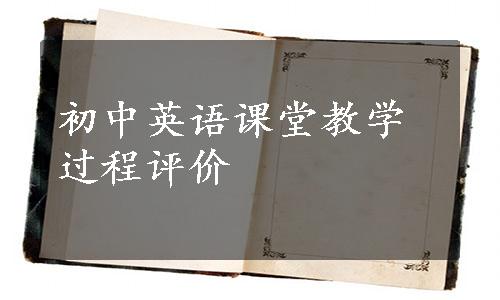 初中英语课堂教学
过程评价